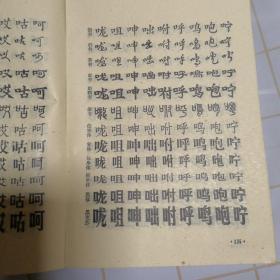 哎咕呵
哎咕呵
哎咕呵
哎咕呵
哎咕呵
哎咕呵
哎咕呵
哎咕呵
哎咕呵
哎咕呵
哎咕呵
哎咕呵
咙咀呻咄咐呼鸣咆咛
咙咀呻咄咐呼鸣咆咛
咙咀呻咄咐呼鸣咆咛
咙咀呻咄咐呼鸣咆咛
咙咀呻咄咐呼鸣咆咛
咙咀呻咄咐呼鸣咆咛
咙咀呻咄咐呼鸣咆咛
咙咀呻咄咐呼鸣咆咛
咙咀呻咄咐呼鸣咆咛
咙咀呻咄咐呼鸣咆咛
咙咀呻咄咐呼鸣咆咛
咙咀呻咄咐呼鸣咆咛